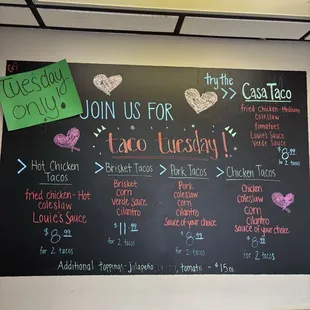 Tuesday
only!
JOIN US FOR
taco tuesday!
try the
>> CASA TACO
fried Chicken - Medium
coleslaw
tomatoes
Louie's Sauce
Verde Sauce
$8.99
for 2 tacos
> Hot Chicken
Tacos
fried chicken - Hot
coleslaw
Louie's Sauce
$8.99
for 2 tacos
> Brisket Tacos
Brisket
corn
verde Sauce
cilantro
$11.99
for 2 tacos
> Pork Tacos
Pork
coleslaw
corn
cilantro
sauce of your choice
$8.99
for 2 tacos
> Chicken Tacos
Chicken
coleslaw
corn
Cilantro
sauce of your choice
$8.99
for 2 tacos
Additional toppings - jalapeño, tomato - $